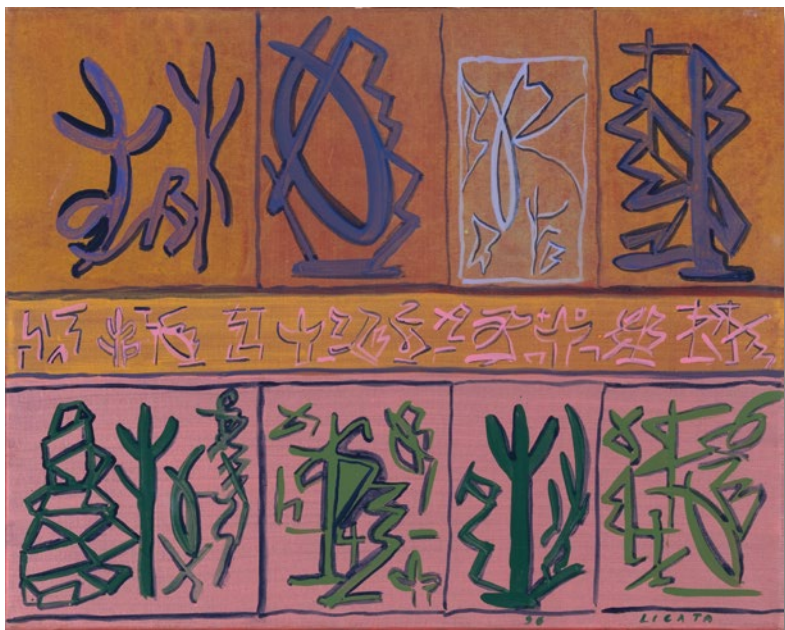 96 LICATA